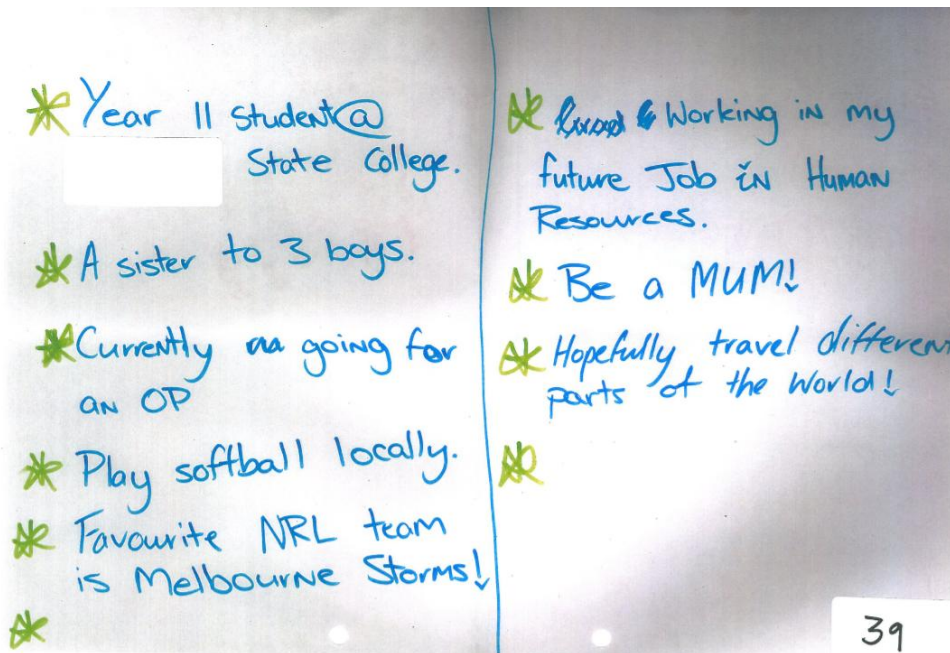 Year 11 student @
State College.
A sister to 3 boys.
Currently going for
an OP
Play softball locally.
Favourite NRL team
is Melbourne Storms!
Working in my
future Job in Human
Resources.
Be a MUM!
Hopefully travel different
parts of the World!
39